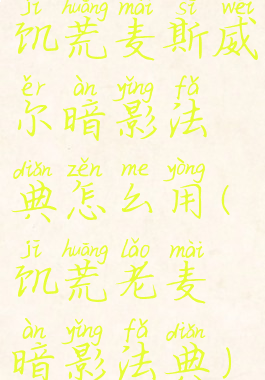 jī huāng mài sī wēi
饥荒麦斯威
ěr àn yǐng fǎ
尔暗影法
diǎn zěn me yòng
典怎么用(
jī huāng lǎo mài
饥荒老麦
àn yǐng fǎ diǎn
暗影法典)